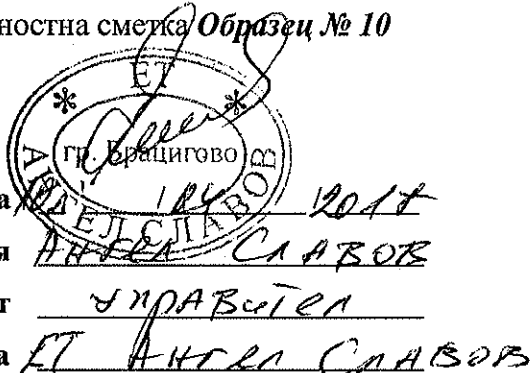 ностна сметка Образец № 10
ЕТ
гр. Брацигово
АНГЕЛ СЛАВОВ
а 04 2017
я Ангел Славов
т управител
а ЕТ Ангел Славов